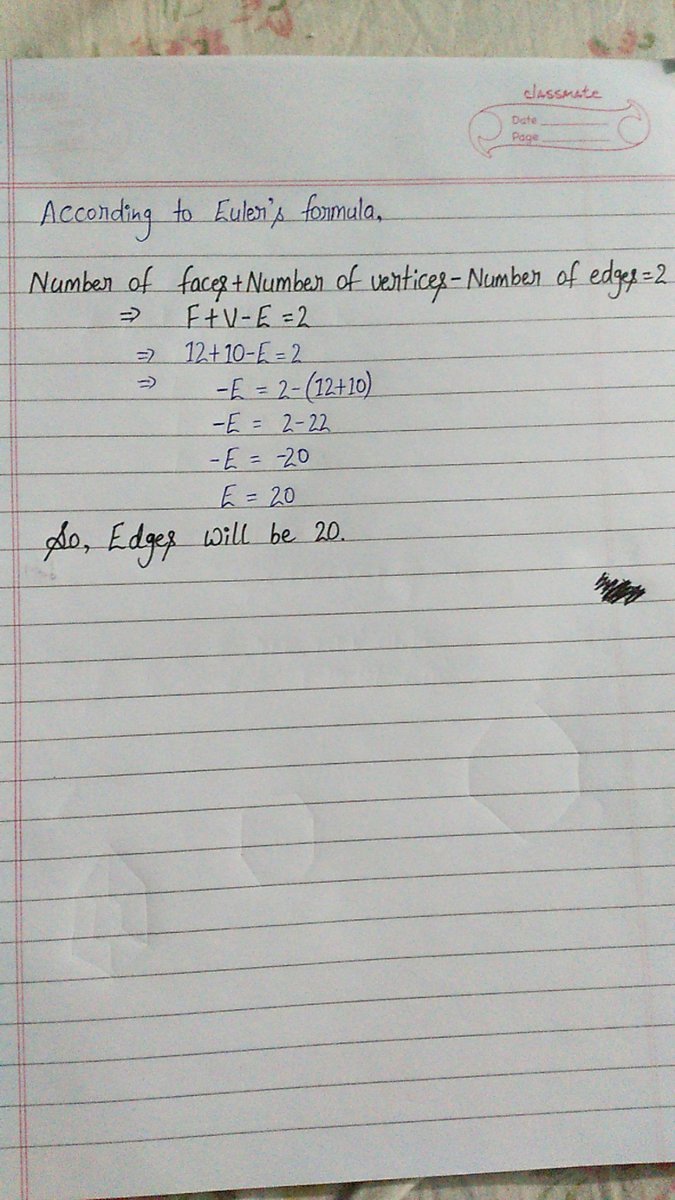 classmate
Date
Page
According to Euler's formula,
Number of faces + Number of vertices - Number of edges = 2
⇒ F+V-E = 2
⇒ 12+10-E = 2
⇒ -E = 2-(12+10)
-E = 2-22
-E = -20
E = 20
So, Edges will be 20.